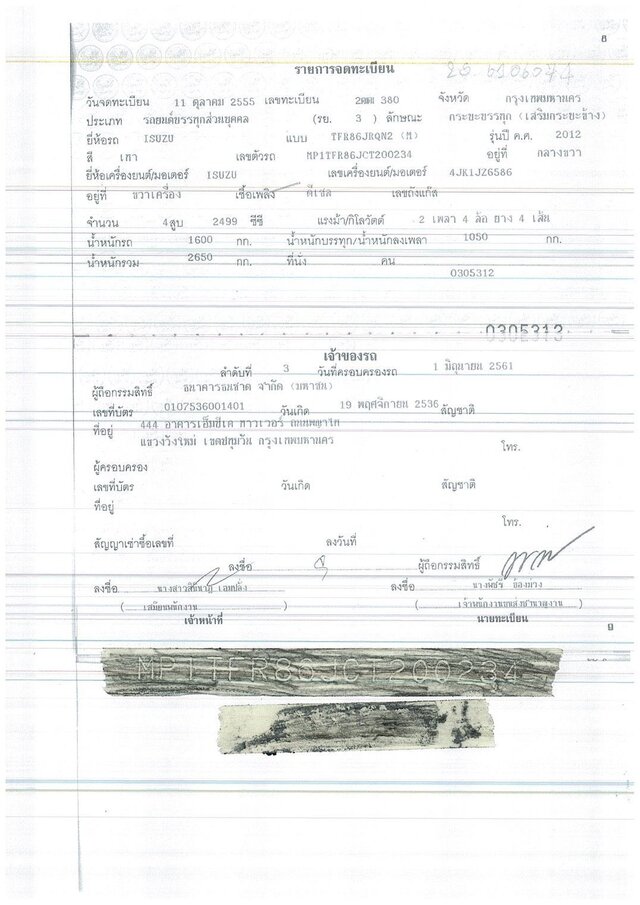 8
รายการจดทะเบียน
วันจดทะเบียน 11 ตุลาคม 2555 เลขทะเบียน 380 จังหวัด กรุงเทพมหานคร
ประเภท รถยนต์บรรทุกส่วนบุคคล (รย. 3 ) ลักษณะ กระบะบรรทุก (เสริมกระบะข้าง)
ยี่ห้อรถ ISUZU แบบ TFR86JRQN2 (M) รุ่นปี ค.ศ. 2012
สี เทา เลขตัวรถ MP1TFR86JCT200234 อยู่ที่ กลางขวา
ยี่ห้อเครื่องยนต์/มอเตอร์ ISUZU เลขเครื่องยนต์/มอเตอร์ 4JK1JZ6586
อยู่ที่ ขวาเครื่อง เชื้อเพลิง ดีเซล เลขถังแก๊ส
จำนวน 4 สูบ 2499 ซีซี แรงม้า/กิโลวัตต์ 2 เพลา 4 ล้อ ยาง 4 เส้น
น้ำหนักรถ 1600 กก. น้ำหนักบรรทุก/น้ำหนักลงเพลา 1050 กก.
น้ำหนักรวม 2650 กก. ที่นั่ง คน
0305312
0305313
เจ้าของรถ
ลำดับที่ 3 วันที่ครอบครองรถ 1 มิถุนายน 2561
ผู้ถือกรรมสิทธิ์ ธนาคารธนชาต จำกัด (มหาชน)
เลขที่บัตร 0107536001401 วันเกิด 19 พฤศจิกายน 2536 สัญชาติ
ที่อยู่ 444 อาคารเอ็มบีเค ทาวเวอร์ ถนนพญาไท
แขวงวังใหม่ เขตปทุมวัน กรุงเทพมหานคร
โทร.
ผู้ครอบครอง
เลขที่บัตร วันเกิด สัญชาติ
ที่อยู่
โทร.
สัญญาเช่าซื้อเลขที่ ลงวันที่
ลงชื่อ ผู้ถือกรรมสิทธิ์
ลงชื่อ ลงชื่อ
( เสมียนพนักงาน ) ( เจ้าพนักงานขนส่งชำนาญงาน )
เจ้าหน้าที่ นายทะเบียน
MP1TFR86JCT200234